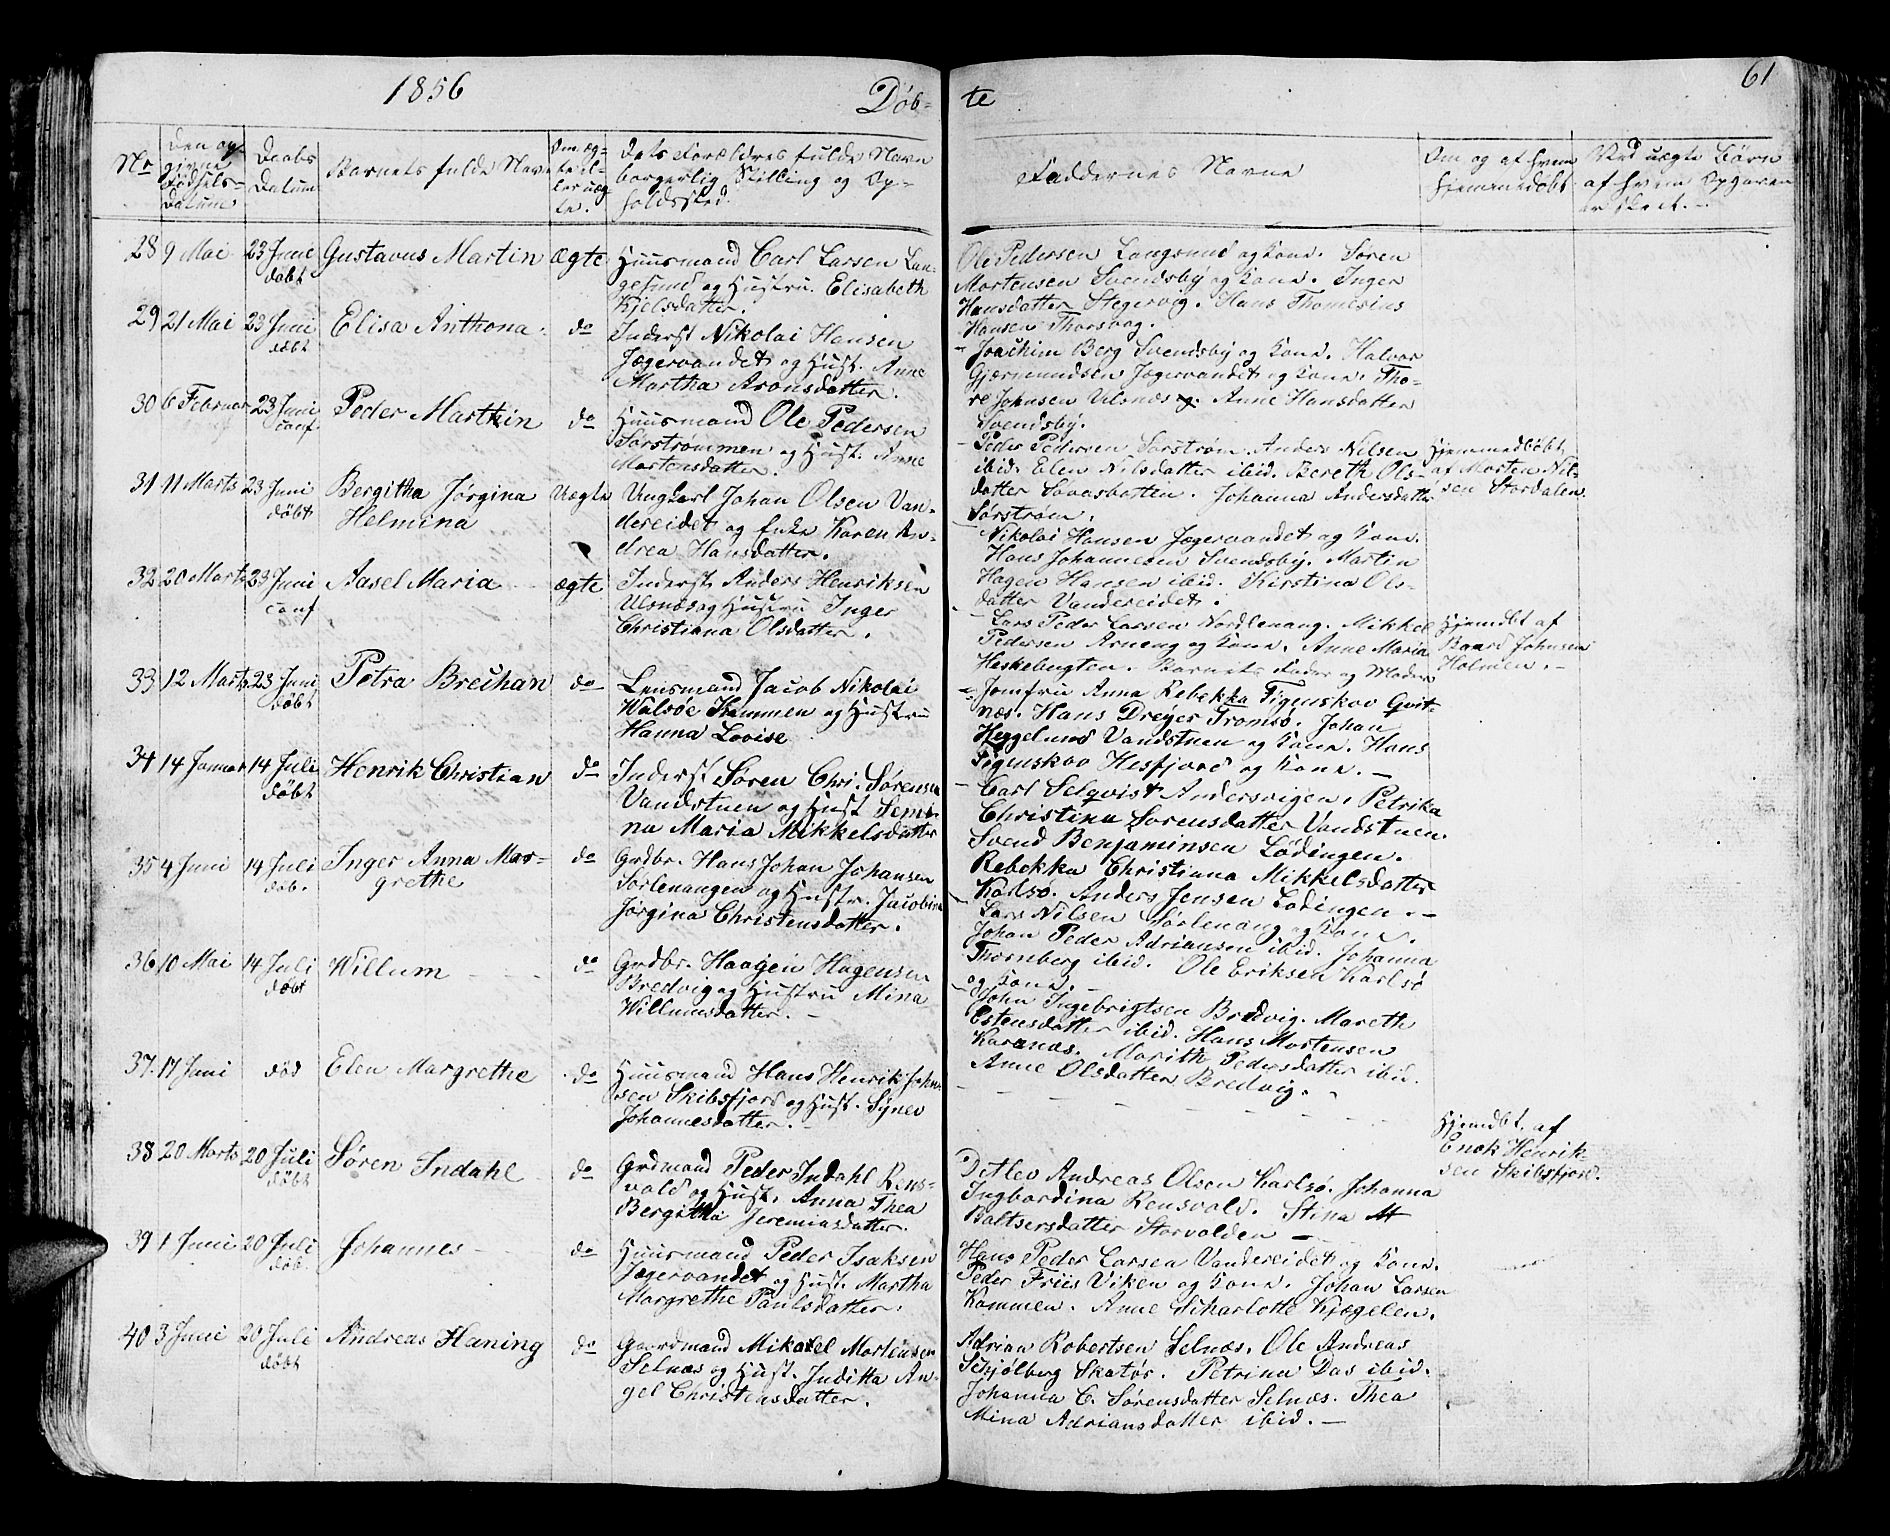 1856
Døb-
te
61
No
Den op-
givne
Fødsels-
Datum
Daabs
Datum
Barnets fulde Navn
Om æg-
te el-
ler uæg-
te.
Dets Forældres fulde Navn
borgerlig Stilling og Op-
holdssted.
Faddernes Navne
Om og af hvem
hjemmedøbt
Ved uægte Børn
af hvem Opgaven
er skeet.
28 9 Mai 23 Juni døbt Gustavus Martin Ægte
Huusmand Carl Larsen Lan-
gesund og Hustru Elisabeth
Kjelsdatter.
Ole Pedersen Langsund og Kone. Søren
Mortensen Svendsby og Kone. Inger
Hansdatter Stegervig. Hans Thomesius
Hansen Thorsvag.
29 21 Mai 23 Juni døbt Elisa Anthona do
Inderst Nikolai Hansen
Jægervandet og Hust. Anne
Martha Aronsdatter.
- Joachim Berg Svendsby og Kone. Halvor
Gjærmundsen Jægervandet og Kone. Tho-
re Johnsen Ulsnes og. Anne Hansdatter
Svendsby.
30 6 Februar 23 Juni conf Peder Marthin do
Huusmand Ole Pedersen
Sørstrømmen og Hust. Anne
Mortensdatter.
- Peder Pedersen Sørstrøm. Anders Nilsen
ibid. Elen Nilsdatter ibid. Bereth Ols-
datter Sovasbotten. Johanna Andersdatter
Sørstrøm.
Hjemmedøbt
af Morten Nil-
sen Stordalen
31 11 Marts 23 Juni døbt Bergitha Jørgina
Helmina
Uægte
Ungkarl Johan Olsen Van-
dereidet og Enke Karen An-
drea Hansdatter.
- Nikolai Hansen Jægervandet og Kone.
Hans Johannesen Svendsby. Martin
Hagen Hansen ibid. Kirstina Ols-
datter Vandereidet.
32 20 Marts 23 Juni conf Aasel Maria ægte
Inderst Anders Henriksen
Ulsnes og Hustru Inger
Christiana Olsdatter.
- Lars Peder Larsen Nordlenang. Mikkel
Pedersen Arneng og Kone. Anne Maria
Heskebugten. Barnets Fader og Moder
Hjemdbt af
Baard Johnsen
Holmen.-
33 12 Marts 23 Juni døbt Petra Brechan do
Lensmand Jacob Nikolai
Wulsøe Kammen og Hustru
Hanna Lovise
- Jomfru Anna Rebekka Figenskov Qvit-
næs. Hans Dreyer Tromsø. Johan
Heggelund Vandstuen og Kone. Hans
Figenskov Hesfjord og Kone. -
34 14 Januar 14 Juli døbt Henrik Christian do
Inderst Søren Chri. Sørensen
Vandstuen og Hust Semi-
na Maria Mikkelsdatter
- Carl Selqvist Andersvigen. Petrika
Christina Sørensdatter Vandstuen.
Svend Benjaminsen Lødingen.
Rebekka Christiana Mikkelsdatter
Karlsø. Anders Jensen Lødingen. -
35 4 Juni 14 Juli døb. Inger Anna Mar-
grethe
do
Grdbr. Hans Johan Johansen
Sørlenangen og Hustr. Jacobine
Jørgina Christensdatter.
- Lars Nilsen Sørlenang og Kone.
Johan Peder Adriansen ibid. Johanna
Thornberg ibid. Ole Eriksen Karlsø
og Kone. -
36 10 Mai 14 Juli døbt Willum do
Grdbr. Haagen Hagensen
Bredvig og Hustru Mina
Willumsdatter. -
- John Ingebrigtsen Bredvig. Mareth
Estensdatter ibid. Hans Mortensen
Karanæs. Marith Pedersdatter ibid.
Anne Olsdatter Bredvig.
37 17 Juni død Elen Margrethe do
Huusmand Hans Henrik John-
sen Skibsfjord og Hust. Synev
Johannesdatter. -
Hjemdbt. af
Enok Henrik
sen Skibsfjord.
38 20 Marts 20 Juli døbt Søren Indahl do
Grdmand Peder Indahl Rens-
vold og Hust. Anna Thea
Bergitha Jeremiasdatter.
Detlev Andreas Olsen Karlsø. Johanna
Ingbardina Rensvold. Stina M
Baltsersdatter Storvolden -
39 1 Juni 20 Juli døb. Johannes do
Huusmand Peder Isaksen
Jægervandet og Hust. Martha
Margrethe Paulsdatter.
Hans Peder Larsen Vandereidet og Kone.
Peder Friis Viken og Kone. Johan Larsen
Kammen. Anne Scharlotte Kjægelen.
40 3 Juni 20 Juli døbt Andreas Haning do
Gaardmand Mikael Mortensen
Selnæs og Hust. Juditta An-
gel Christensdatter.
Adrian Robertsen Selnæs. Ole Andreas
Schjølberg Skatør. Petrina Das ibid.
Johanna C. Sørensdatter Selnæs. Thea
Mina Adriansdatter ibid. -